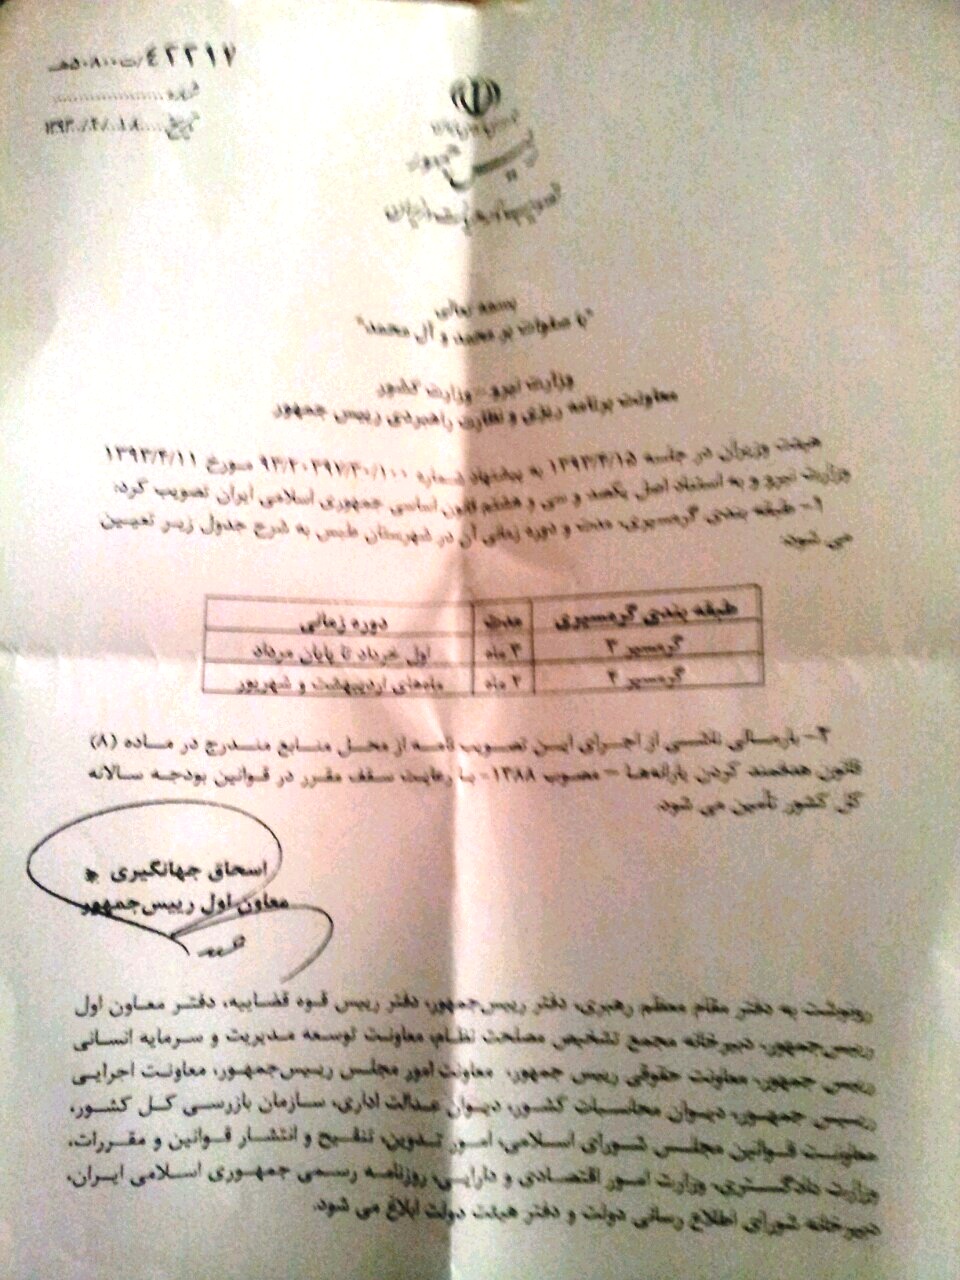 ۴۲۲۱۷/ت۵۰۸۰۰هـ
شماره
تاریخ ۱۳۹۳/۴/۱۸
رییس جمهور
تصویب نامه هیات وزیران
بسمه تعالی
"با صلوات بر محمد و آل محمد"
وزارت نیرو – وزارت کشور
معاونت برنامه ریزی و نظارت راهبردی رییس جمهور
هیئت وزیران در جلسه ۱۳۹۳/۴/۱۵ به پیشنهاد شماره ۹۳/۲۰۲۹۷/۳۰/۱۰۰ مورخ ۱۳۹۳/۴/۱۱
وزارت نیرو و به استناد اصل یکصد و سی و هشتم قانون اساسی جمهوری اسلامی ایران تصویب کرد:
۱- طبقه بندی گرمسیری، مدت و دوره زمانی آن در شهرستان طبس به شرح جدول زیر تعیین
می شود:
طبقه بندی گرمسیری مدت دوره زمانی
گرمسیر ۳ ۳ ماه اول خرداد تا پایان مرداد
گرمسیر ۴ ۲ ماه ماه‌های اردیبهشت و شهریور
۲- بارمالی ناشی از اجرای این تصویب نامه از محل منابع مندرج در ماده (۸)
قانون هدفمند کردن یارانه‌ها – مصوب ۱۳۸۸- با رعایت سقف مقرر در قوانین بودجه سالانه
کل کشور تأمین می شود.
اسحاق جهانگیری
معاون اول رییس‌جمهور
رونوشت به دفتر مقام معظم رهبری، دفتر رییس‌جمهور، دفتر رییس قوه قضاییه، دفتر معاون اول
رییس‌جمهور، دبیرخانه مجمع تشخیص مصلحت نظام، معاونت توسعه مدیریت و سرمایه انسانی
رییس جمهور، معاونت حقوقی رییس جمهور، معاونت امور مجلس رییس‌جمهور، معاونت اجرایی
رییس جمهور، دیوان محاسبات کشور، دیوان عدالت اداری، سازمان بازرسی کل کشور،
معاونت قوانین مجلس شورای اسلامی، امور تدوین، تنقیح و انتشار قوانین و مقررات،
وزارت دادگستری، وزارت امور اقتصادی و دارایی، روزنامه رسمی جمهوری اسلامی ایران،
دبیرخانه شورای اطلاع رسانی دولت و دفتر هیئت دولت ابلاغ می شود.